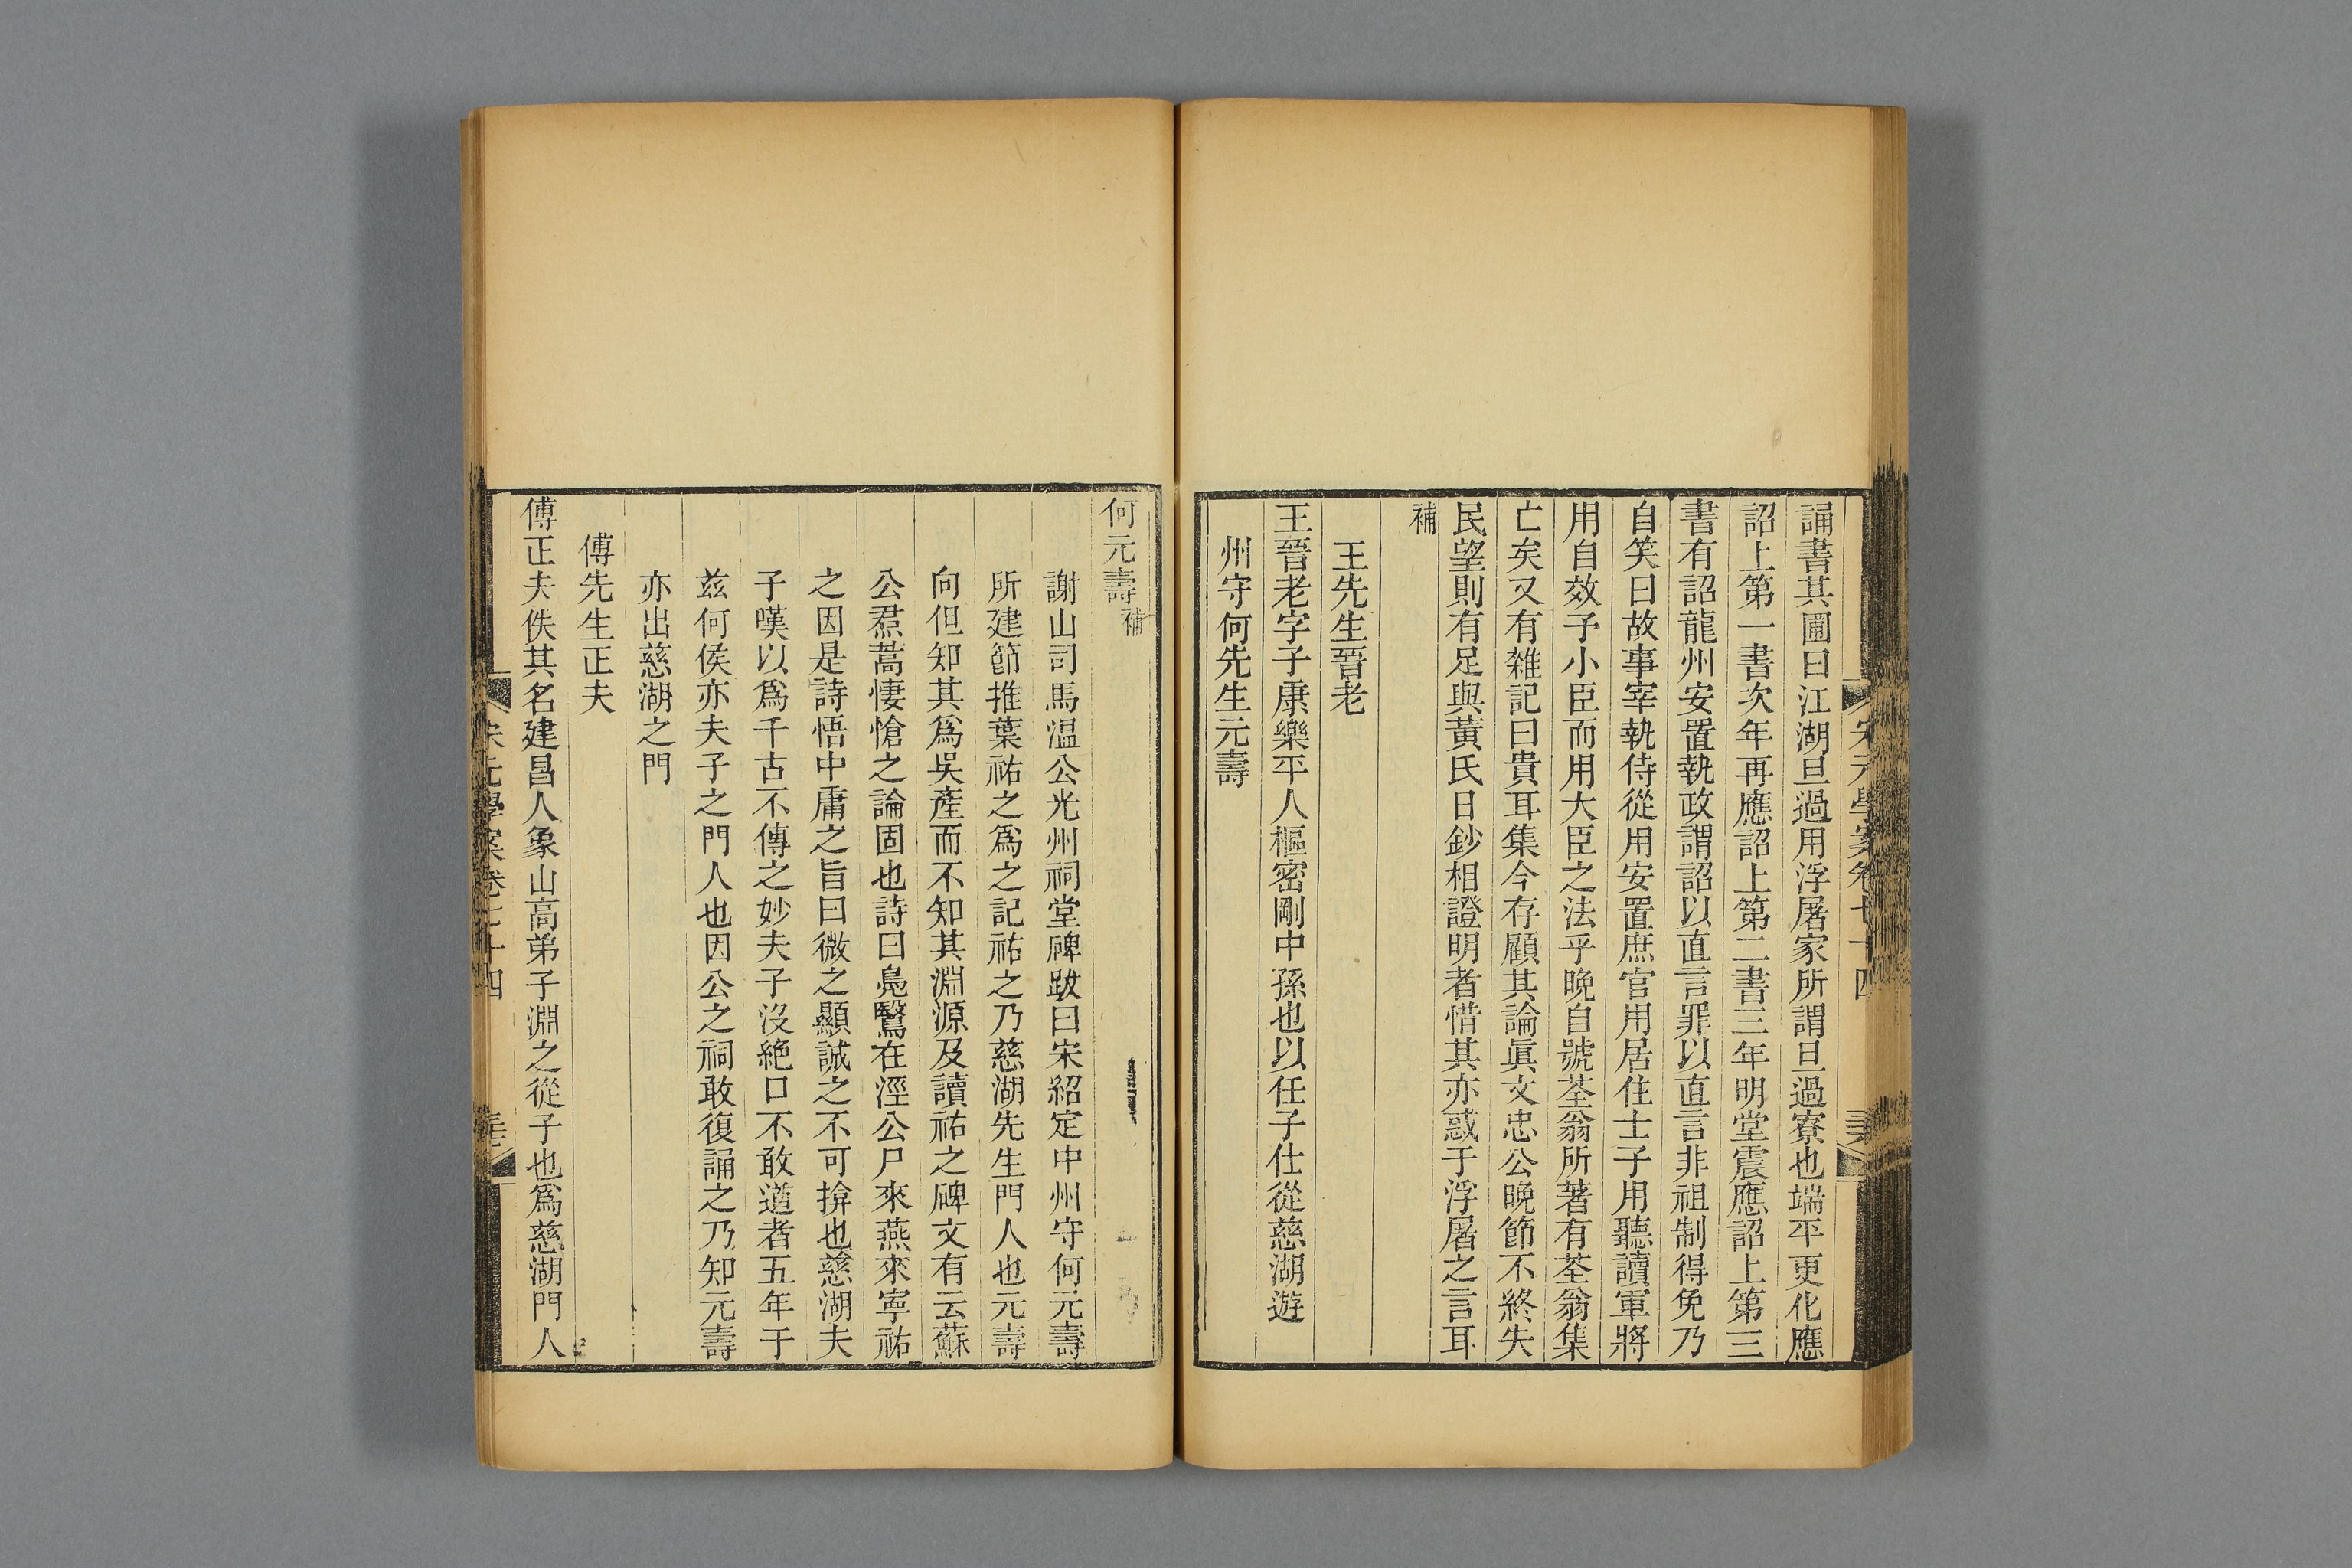 誦書其圃曰江湖旦過用浮屠家所謂旦過寮也端平更化應
詔上第一書次年再應詔上第二書三年明堂震應詔上第三
書有詔龍州安置執政謂詔以直言罪以直言非祖制得免乃
自笑曰故事宰執侍從用安置庶官用居住士子用聽讀軍將
用自效予小臣而用大臣之法乎晚自號荃翁所著有荃翁集
亡矣又有雜記曰貴耳集今存顧其論眞文忠公晚節不終失
民望則有足與黃氏日鈔相證明者惜其亦惑于浮屠之言耳
補
王先生晉老
王晉老字子康樂平人樞密剛中孫也以任子仕從慈湖遊
州守何先生元壽
何元壽補
謝山司馬温公光州祠堂碑跋曰宋紹定中州守何元壽
所建節推葉祐之爲之記祐之乃慈湖先生門人也元壽
向但知其爲吳產而不知其淵源及讀祐之碑文有云蘇
公焄蒿悽愴之論固也詩曰鳧鷖在涇公尸來燕來寧祐
之因是詩悟中庸之旨曰微之顯誠之不可揜也慈湖夫
子嘆以爲千古不傳之妙夫子沒絶口不敢道者五年于
兹何侯亦夫子之門人也因公之祠敢復誦之乃知元壽
亦出慈湖之門
傅先生正夫
傅正夫佚其名建昌人象山高弟子淵之從子也爲慈湖門人
宋元學案卷七十四